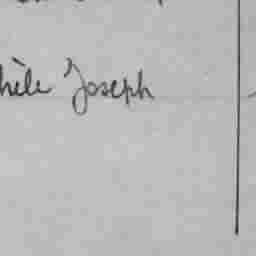 hèle Joseph